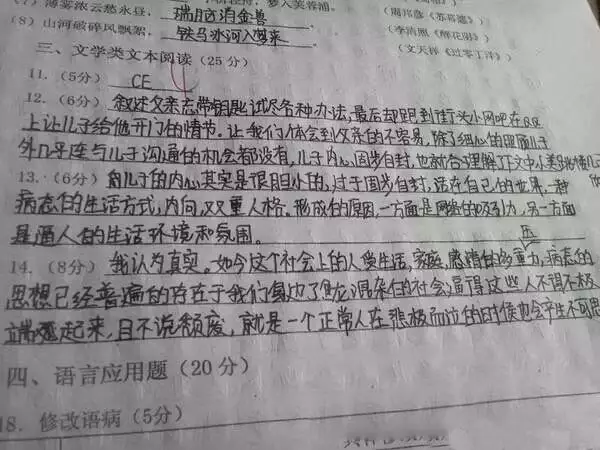 (7) 薄雾浓云愁永昼， 瑞脑消金兽 (李清照《醉花阴》)
(8) 山河破碎风飘絮， 铁马冰河入梦来 (文天祥《过零丁洋》)
三、文学类文本阅读 (25分)
11. (5分) CE
12. (6分) 叙述父亲忘带钥匙试尽各种办法，最后却跑到街头小网吧在QQ
上让儿子给他开门的情节。让我们体会到父亲的不容易，除了细心的照顾儿子
外几乎连与儿子沟通的机会都没有，儿子内心固步自封，也就
13. (6分) 儿子的内心其实是很胆小的，过于固步自封，活在自己的世界，一种
病态的生活方式，内向，双重人格。形成的原因，一方面是网络的吸引力，另一方面
是逼人的生活环境和氛围。
14. (8分) 我认为真实。如今这个社会上的人受生活，家庭，感情的多重压力，病态的
思想已经普遍的存在于我们身边了
端起来，且不说颓废，就是一个正常人在悲极而泣的时候也会产生不可思
四、语言应用题 (20分)
18. 修改语病 (5分)